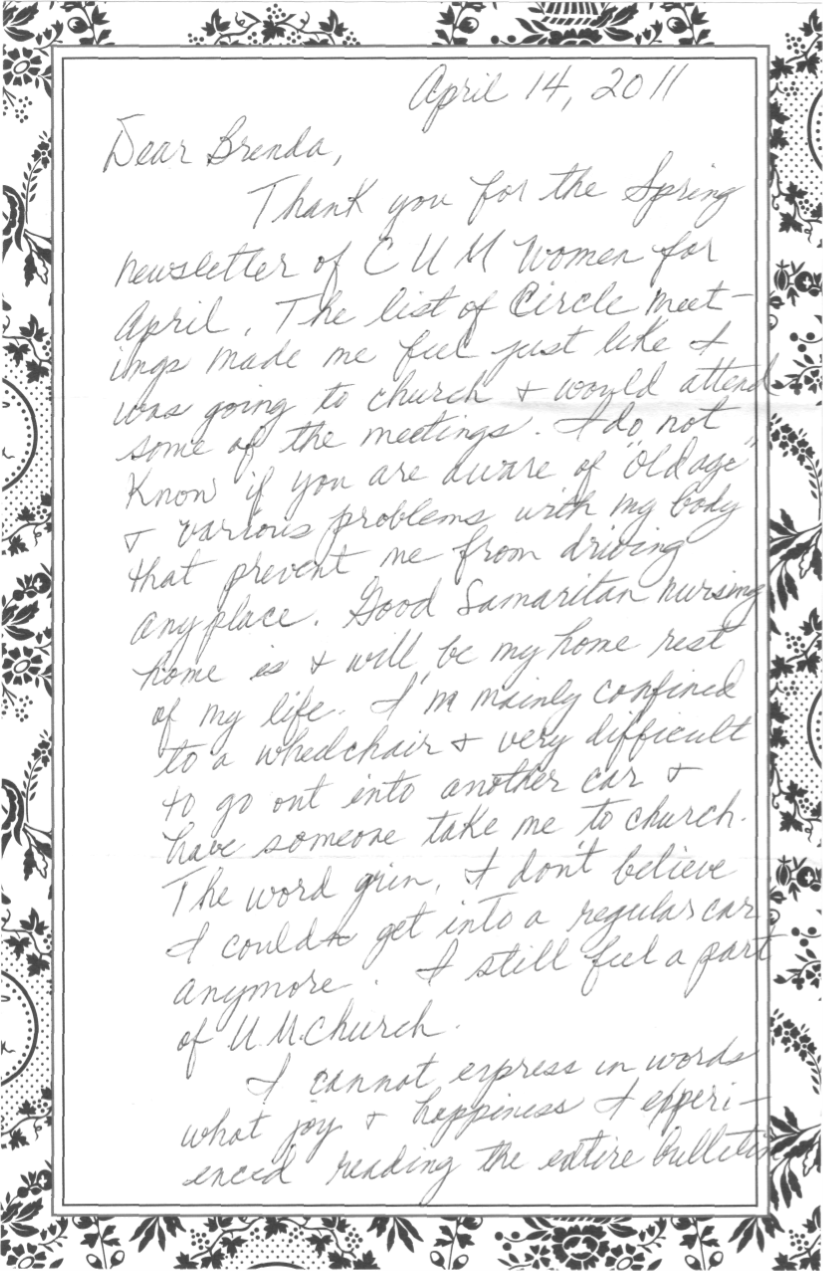 April 14, 2011
Dear Brenda,
Thank you for the Spring
newsletter of C U M Women for
April. The list of Circle meet-
ings made me feel just like I
was going to church & would attend
some of the meetings. I do not
know if you are aware of "old age"
& various problems with my body
that prevent me from driving
any place. Good Samaritan nursing
home is & will be my home rest
of my life. I'm mainly confined
to a wheelchair & very difficult
to go out into another car &
have someone take me to church.
The word I don't believe
I could get into a regular car
anymore. I still feel a part
of U.M. Church.
I cannot express in words
what joy & happiness I experi-
enced reading the entire bulletin